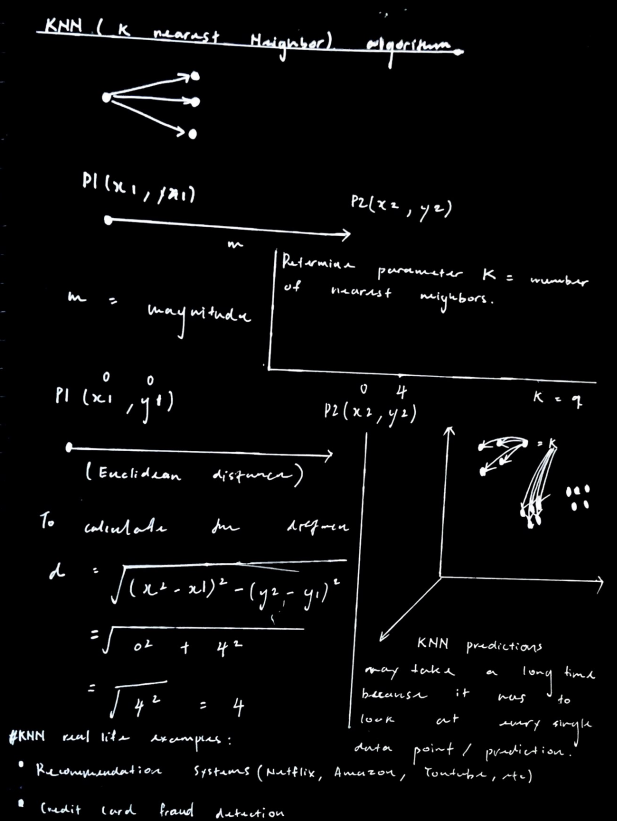 KNN ( K nearest Neighbor) algorithm
P1 (x1 , y1)
P2(x2 , y2)
m
Determine parameter K = number
of nearest neighbors.
m = magnitude
0 0
P1 (x1 , y1)
0 4
P2(x2, y2)
K = 9
= K
(Euclidean distance)
To calculate
d = √(x2 - x1)² - (y2 - y1)²
= √0² + 4²
= √4² = 4
KNN predictions
may take a long time
because it has to
look at every single
data point / prediction.
#KNN real life examples:
• Recommendation Systems (Netflix, Amazon, Youtube, etc)
• Credit card fraud detection